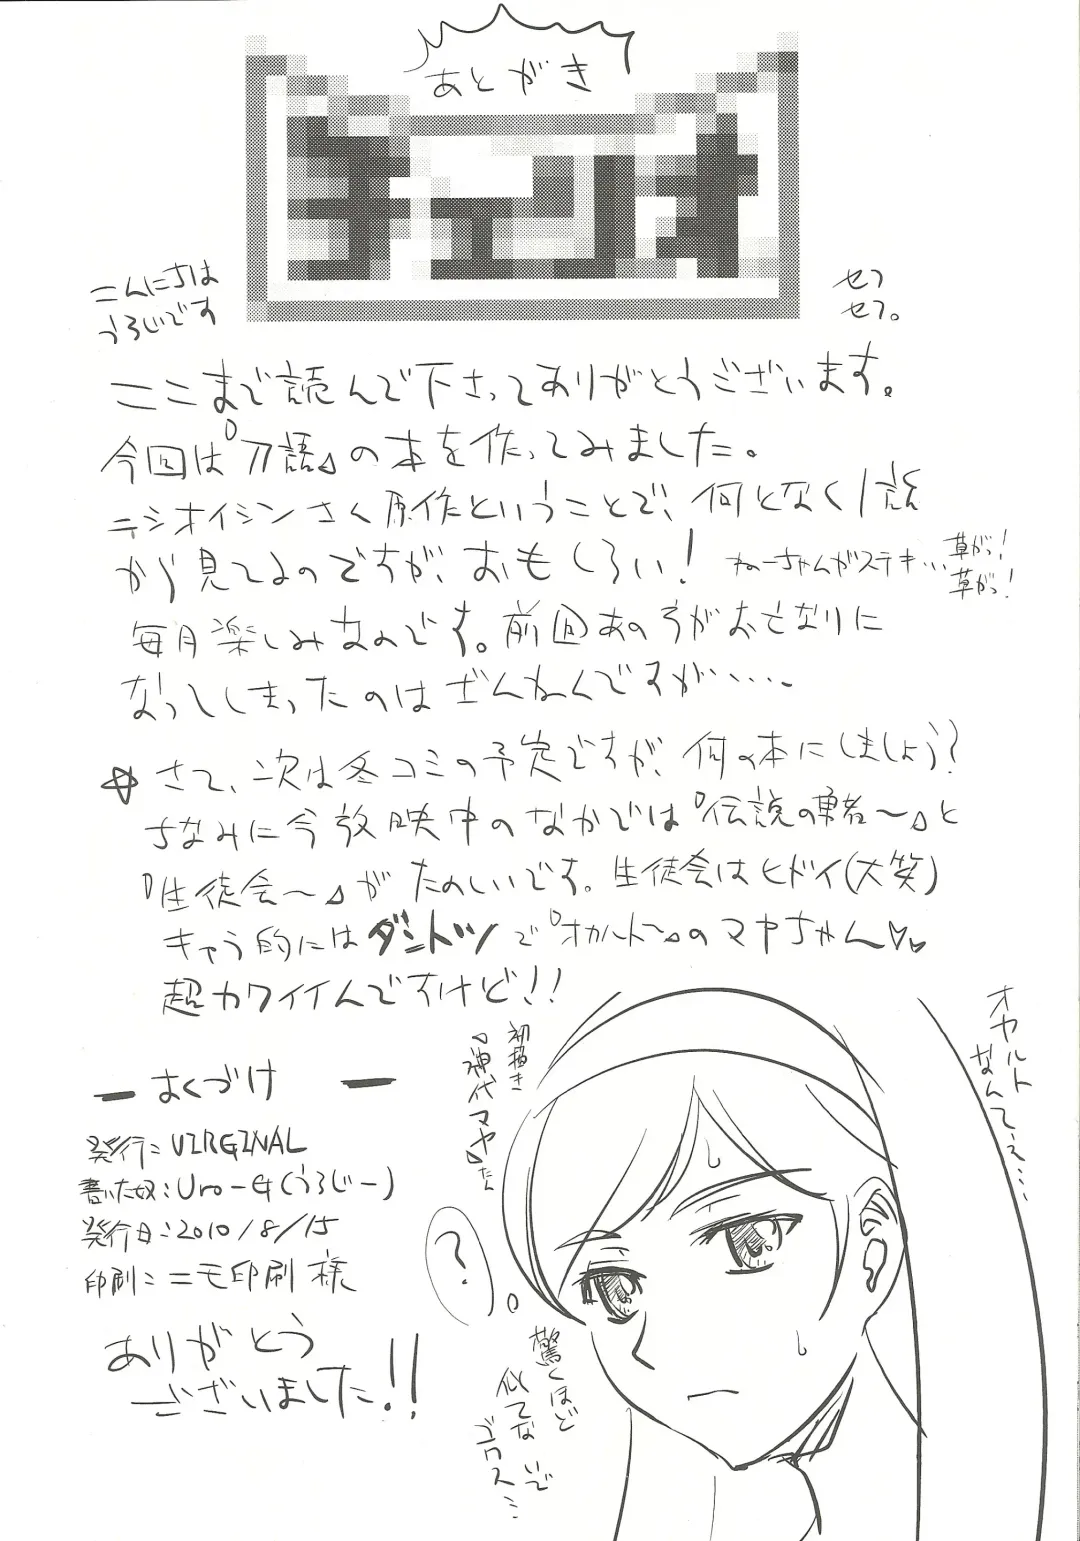 あとがき
チェリオ
こんにちは
うろじです
セフ
セフ。
ここまで読んで下さってありがとうございます。
今回は『刀語』の本を作ってみました。
ニシオイシンさく原作ということで、何となく1話
から見てるのですが、おもしろい!
ねーちゃんがステキ…
草がっ!
草がっ!
毎月楽しみなのです。前回あの
なってしまったのはざんねんですが……
☆さて、次は冬コミの予定ですが、何の本にしましょう?
ちなみに今放映中のなかでは『伝説の勇者〜』と
『生徒会〜』がたのしいです。生徒会はヒドイ(大笑)
キャラ的にはダントツで『オカルト〜』のマヤちゃん♡♡
超カワイイんですけど!!
オカルト
なんてぇ…
初描き
『神代マヤ』たん
ー おくづけ ー
発行:VIRGINAL
書いた奴:Uro-G(うろじー)
発行日:2010/8/15
印刷:ニモ印刷様
ありがとう
ございました!!
?
驚くほど
似てないで
ゴワス…